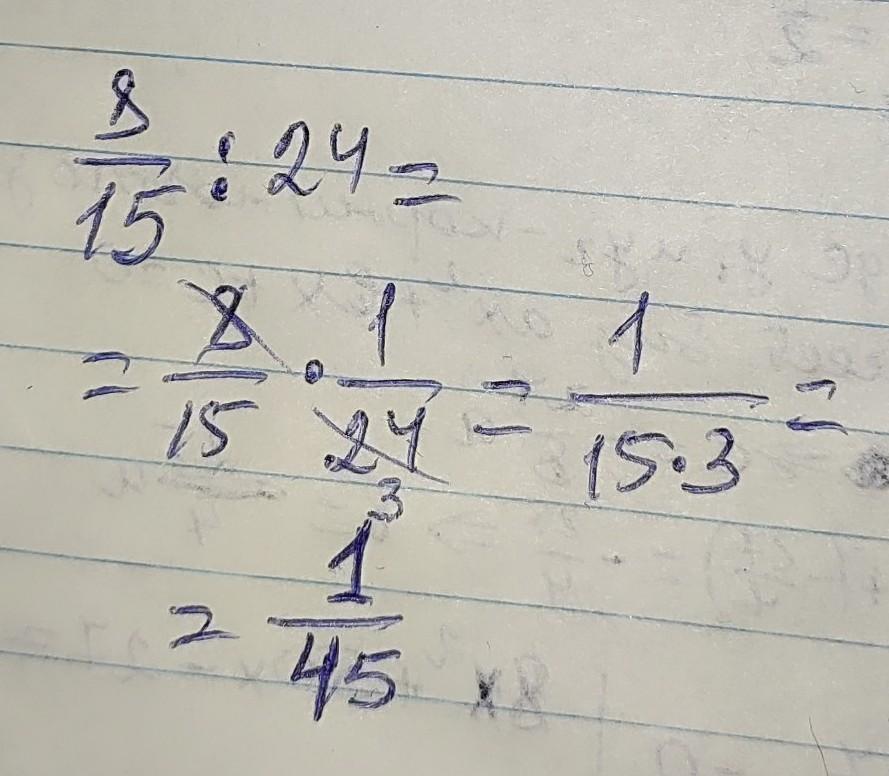 8/15 : 24 =
= 8/15 · 1/24 3 = 1/(15·3) =
= 1/45